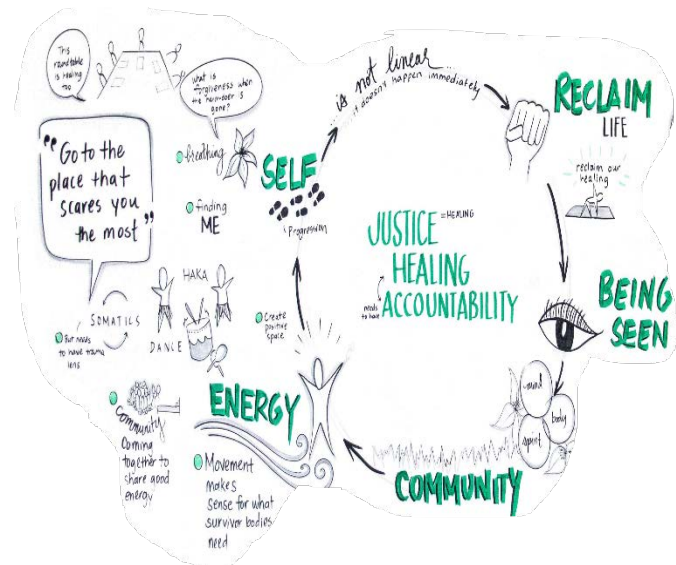 This
roundtable
is healing
too
What is
forgiveness when
the harm-doer is
gone?
"Go to the
place that
scares you
the most"
breathing
finding
ME
SELF
Progression
is not linear...
...it doesn't happen immediately
RECLAIM
LIFE
reclaim our
healing
JUSTICE = HEALING
HEALING
needs
to have
ACCOUNTABILITY
BEING
SEEN
mind
body
spirit
COMMUNITY
ENERGY
Create
positive
space
HAKA
DANCE
SOMATICS
But needs
to have trauma
lens
community
coming
together to
share good
energy
Movement
makes
sense for what
survivor bodies
need